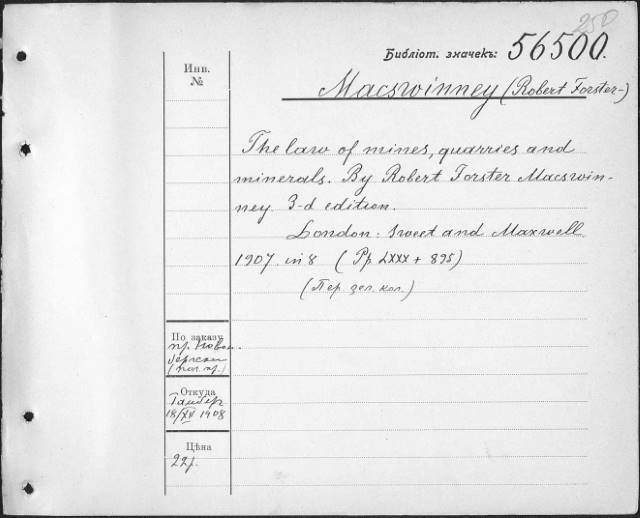 250
Библіот. значекъ: 56500.
Инв.
№
Macswinney (Robert Forster-)
The law of mines, quarries and
minerals. By Robert Forster Macswin-
ney. 3-d edition.
London: Sweet and Maxwell.
1907. in 8 (Pp LXXX + 895)
(Пер зел. кол.)
По заказу
пр.
Откуда
18/XII 1908
Цѣна
22р.